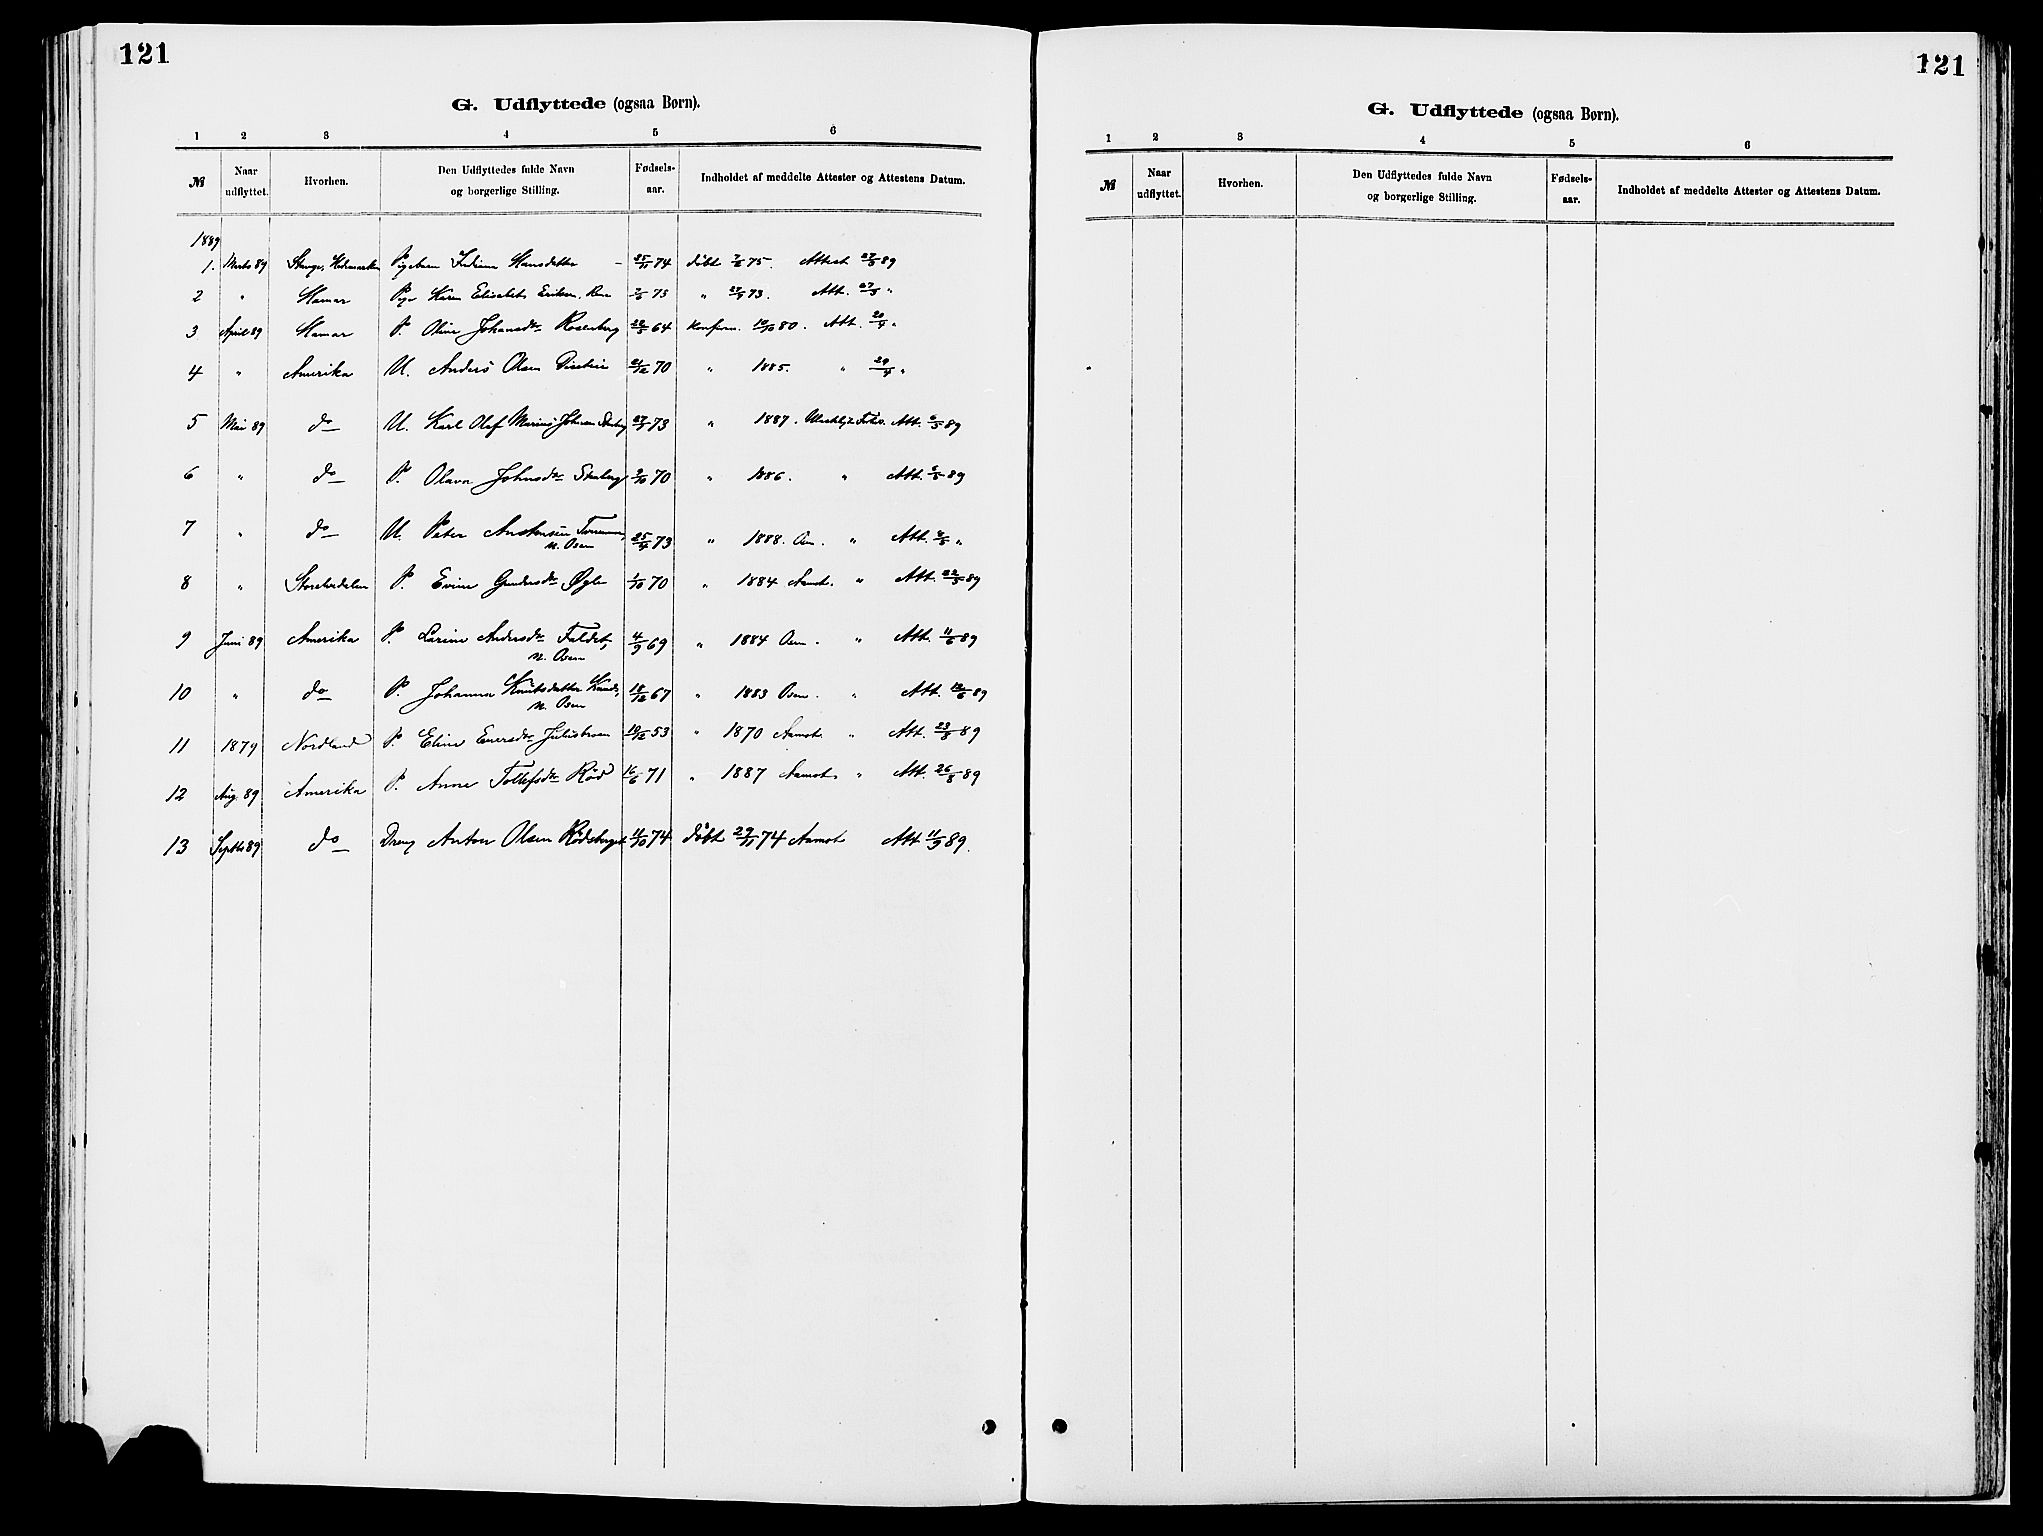 121
G. Udflyttede (ogsaa Børn).
1 2 3 4 5 6
№ Naar udflyttet. Hvorhen. Den Udflyttedes fulde Navn og borgerlige Stilling. Fødsels-aar. Indholdet af meddelte Attester og Attestens Datum.
1889
1. Marts 89 Stange, Hedemarken Pigebarn Juliane Hansdatter 25/11 74 døbt 75. Attest 27/3 89
2 " Hamar Pige Karen Elisabet Eriksen 73 " 73. Att. 27/3 "
3 April 89 Hamar P. Oline Johansdr Rosenberg 64 Konfirm. 10/10 80. Att. 20/4 "
4 " Amerika U. Anders Olsen 21/12 70 " 1885. " 29/4 "
5 Mai 89 do U. Karl Olaf Marius Johnsen 73 " 1887. Att. 89
6 " do P. Olava Johnsdr 70 " 1886. " Att. 89
7 " do U. Peter 25/4 73 " 1888. Osen. " Att. "
n. Osen
8 " Storelvedalen P. Evine Gundersdr Øgle 1/10 70 " 1884 Aamot. " Att. 22/5 89
9 Juni 89 Amerika P. Larine Andersdr Faldet, 4/9 69 " 1884 Osen. " Att. 11/6 89
n. Osen
10 " do P. Johanna Knutsdatter 18/12 67 " 1883 Osen. " Att. 12/6 89
n. Osen
11 1879 Nordland P. Eline Enersdr Julusmoen 53 " 1870 Aamot. " Att. 23/8 89
12 Aug. 89 Amerika P. Anne Tollefsdr Rød 16/6 71 " 1887 Aamot. " Att. 26/8 89
13 Septbr 89 do Dreng Anton Olsen Rødsberget 11/10 74 døbt 29/11 74 Aamot Att 11/9 89.
121
G. Udflyttede (ogsaa Børn).
1 2 3 4 5 6
№ Naar udflyttet. Hvorhen. Den Udflyttedes fulde Navn og borgerlige Stilling. Fødsels-aar. Indholdet af meddelte Attester og Attestens Datum.